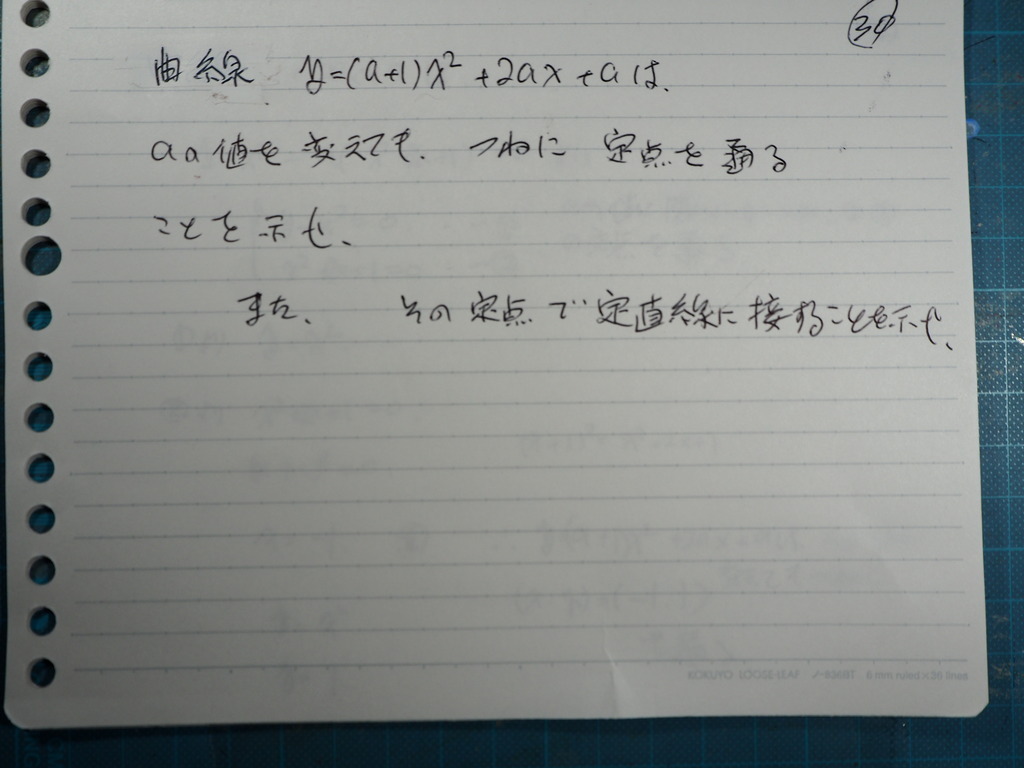 34
曲線 y=(a+1)x²+2ax+aは、
aの値を変えても、つねに 定点を通る
ことを示せ、
また、 その定点で定直線に接することを示せ、
KOKUYO LOOSE-LEAF ノ-836BT 6 mm ruled×36 lines